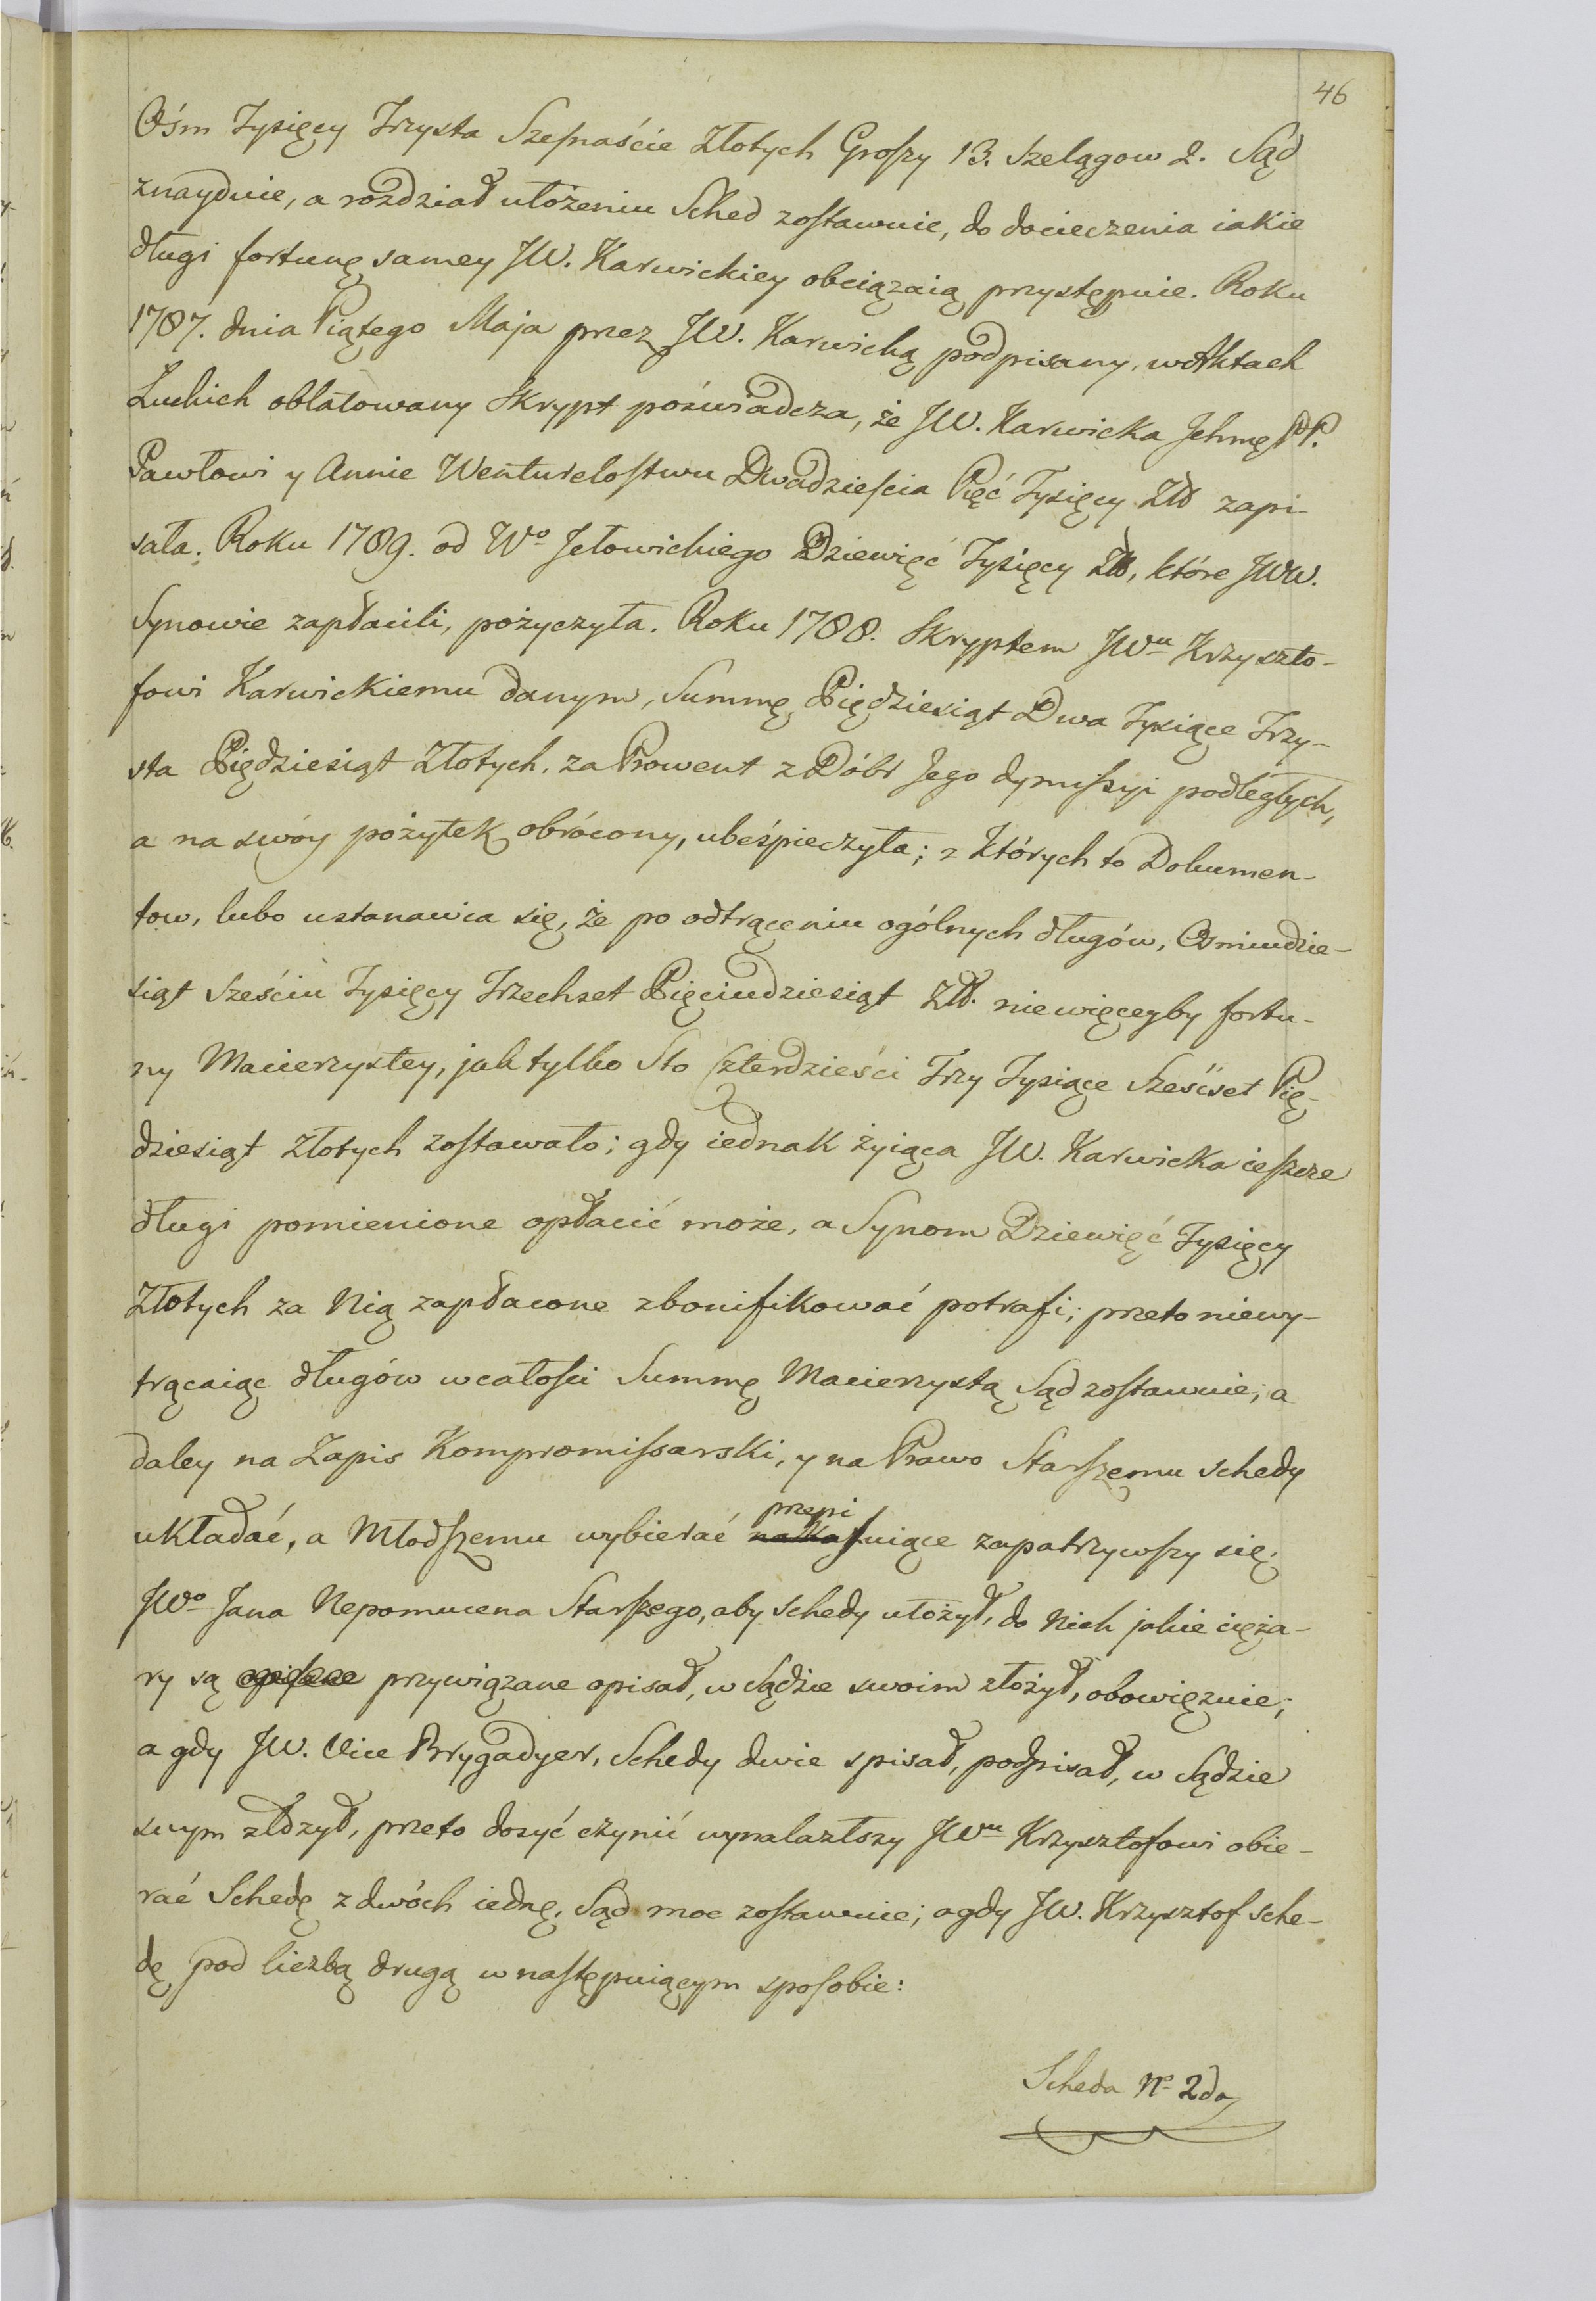 46
Ośm Tysięcy Trzysta Szesnaście Złotych Groszy 13. Szelągow 2. Sąd
znayduie, a rozdział ułożeniu Sched zostawuie, do docieczenia iakie
długi fortunę samey JW. Karwickiey obciązaią przystępuie. Roku
1787. dnia Piątego Maja przez JW. Karwicką podpisany, w Aktach
Luckich oblatowany Skrypt poświadcza, że JW. Karwicka Jchmę PP.
Pawłowi y Annie Wenturelostwu Dwadzieścia Pięć Tysięcy Złł zapi-
sała. Roku 1789. od Wo Jełowickiego Dziewięć Tysięcy Złł, które JWW.
Synowie zapłacili, pożyczyła. Roku 1788. Skryptem JWu Krzyszto-
fowi Karwickiemu danym, Summę Piędziesiąt Dwa Tysiące Trzy-
sta Piędziesiąt Złotych, za Prowent z Dóbr Jego dymissyi podległych,
a na swóy pożytek obrócony, ubeśpieczyła; z których to Dokumen-
tow, lubo ustanawia się, że po odtrąceniu ogólnych długów, Osmiudzie-
siąt Sześciu Tysięcy Trzechset Pięciudziesiąt Złł. niewięceyby fortu-
ny Macierzystey, jak tylko Sto Czterdzieści Trzy Tysiące Sześćset Pię-
dziesiąt Złotych zostawało; gdy iednak żyiąca JW. Karwicka ieszcze
długi pomienione opłacić może, a Synom Dziewięć Tysięcy
Złotych za Nią zapłacone zbonifikować potrafi; przeto niewy-
trącaiąc długów w całości Summę Macierzystą Sąd zostawuie; a
daley na Zapis Kompromissarski, y na Prawo Starszemu schedy
układać, a Młodszemu wybierać przepi
suiące zapatrzywszy się;
JWo Jana Nepomucena Starszego, aby schedy ułożył, do Nich jakie cięża-
ry są przywiązane opisał, w Sądzie swoim złożył, obowięzuie;
a gdy JW. Vice Brygadyer, Schedy dwie spisał, podpisał, w Sądzie
swym złożył, przeto dosyć czynić wynalazłszy JWu Krzysztofowi obie-
rać Schedę z dwóch iednę, Sąd moc zostawuie; a gdy JW. Krzysztof sche-
dę pod liczbą drugą w następuiącym sposobie:
Scheda No 2da